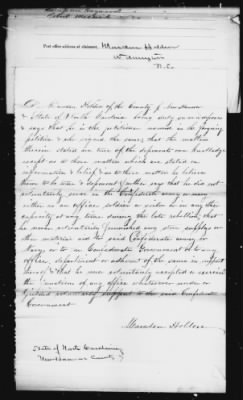 Post office address of claimant, Marsden Holden
Wilmington
N.C.
Marsden Holden of the County of New Hanover
& State of North Carolina being duly sworn deposes
& says that he is the petitioner named in the foregoing
petition & who signed the same that the matters
therein stated are true of the deponent's own knowledge
except as to those matters which are stated on
information & belief & as to those matters he believes
them to be true & deponent further says that he did not
voluntarily serve in the Confederate army or navy
either as an officer soldier or sailor or in any other
capacity at any time during the late rebellion, that
he never voluntarily furnished any stores supplies or
other materials aid to said Confederate army or
Navy or to the Confederate Government or to any
officer, department or adherent of the same in support
thereof & that he never voluntarily accepted or exercised
the functions of any office whatsoever under or
yielded voluntary support to the said Confederate
Government
Marsden Holden
State of North Carolina
New Hanover County